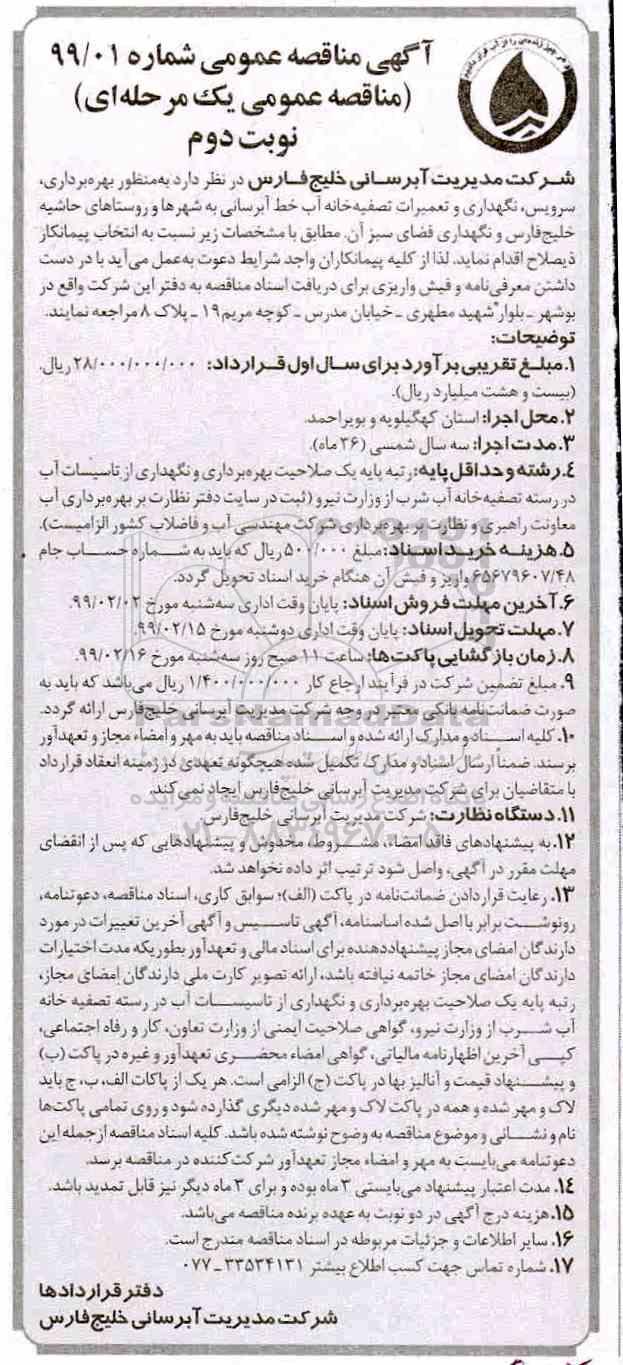 آگهی مناقصه عمومی شماره ۹۹/۰۱
(مناقصه عمومی یک مرحله‌ای)
نوبت دوم
شرکت مدیریت آبرسانی خلیج‌فارس در نظر دارد به‌منظور بهره‌برداری،
سرویس، نگهداری و تعمیرات تصفیه‌خانه آب خط آبرسانی به شهرها و روستاهای حاشیه
خلیج‌فارس و نگهداری فضای سبز آن. مطابق با مشخصات زیر نسبت به انتخاب پیمانکار
ذیصلاح اقدام نماید. لذا از کلیه پیمانکاران واجد شرایط دعوت به‌عمل می‌آید با در دست
داشتن معرفی‌نامه و فیش واریزی برای دریافت اسناد مناقصه به دفتر این شرکت واقع در
بوشهر ـ بلوار شهید مطهری ـ خیابان مدرس ـ کوچه مریم ۱۹ ـ پلاک ۸ مراجعه نمایند.
توضیحات:
۱. مبلغ تقریبی برآورد برای سال اول قرارداد: ۲۸/۰۰۰/۰۰۰/۰۰۰ ریال.
(بیست و هشت میلیارد ریال).
۲. محل اجرا: استان کهگیلویه و بویراحمد.
۳. مدت اجرا: سه سال شمسی (۳۶ ماه).
۴. رشته و حداقل پایه: رتبه پایه یک صلاحیت بهره‌برداری و نگهداری از تاسیسات آب
در رسته تصفیه‌خانه آب شرب از وزارت نیرو (ثبت در سایت دفتر نظارت بر بهره‌برداری آب
معاونت راهبری و نظارت بر بهره‌برداری شرکت مهندسی آب و فاضلاب کشور الزامیست).
۵. هزینه خرید اسناد: مبلغ ۵۰۰/۰۰۰ ریال که باید به شماره حساب جام
۶۵۶۷۹۶۰۷/۴۸ واریز و فیش آن هنگام خرید اسناد تحویل گردد.
۶. آخرین مهلت فروش اسناد: پایان وقت اداری سه‌شنبه مورخ ۹۹/۰۲/۰۲.
۷. مهلت تحویل اسناد: پایان وقت اداری دوشنبه مورخ ۹۹/۰۲/۱۵.
۸. زمان بازگشایی پاکت‌ها: ساعت ۱۱ صبح روز سه‌شنبه مورخ ۹۹/۰۲/۱۶.
۹. مبلغ تضمین شرکت در فرآیند ارجاع کار ۱/۴۰۰/۰۰۰/۰۰۰ ریال می‌باشد که باید به
صورت ضمانت‌نامه بانکی معتبر در وجه شرکت مدیریت آبرسانی خلیج‌فارس ارائه گردد.
۱۰. کلیه اسناد و مدارک ارائه شده و اسناد مناقصه باید به مهر و امضاء مجاز و تعهدآور
برسند. ضمناً ارسال اسناد و مدارک تکمیل شده هیچگونه تعهدی در زمینه انعقاد قرارداد
با متقاضیان برای شرکت مدیریت آبرسانی خلیج‌فارس ایجاد نمی‌کند.
۱۱. دستگاه نظارت: شرکت مدیریت آبرسانی خلیج‌فارس
۱۲. به پیشنهادهای فاقد امضاء، مشروط، مخدوش و پیشنهادهایی که پس از انقضای
مهلت مقرر در آگهی، واصل شود ترتیب اثر داده نخواهد شد.
۱۳. رعایت قراردادن ضمانت‌نامه در پاکت (الف)؛ سوابق کاری، اسناد مناقصه، دعوتنامه،
رونوشت برابر با اصل شده اساسنامه، آگهی تاسیس و آگهی آخرین تغییرات در مورد
دارندگان امضای مجاز پیشنهاددهنده برای اسناد مالی و تعهدآور بطوریکه مدت اختیارات
دارندگان امضای مجاز خاتمه نیافته باشد، ارائه تصویر کارت ملی دارندگان امضای مجاز،
رتبه پایه یک صلاحیت بهره‌برداری و نگهداری از تاسیسات آب در رسته تصفیه خانه
آب شرب از وزارت نیرو، گواهی صلاحیت ایمنی از وزارت تعاون، کار و رفاه اجتماعی،
کپی آخرین اظهارنامه مالیاتی، گواهی امضاء محضری تعهدآور و غیره در پاکت (ب)
و پیشنهاد قیمت و آنالیز بها در پاکت (ج) الزامی است. هر یک از پاکات الف، ب، ج باید
لاک و مهر شده و همه در پاکت لاک و مهر شده دیگری گذارده شود و روی تمامی پاکت‌ها
نام و نشانی و موضوع مناقصه به وضوح نوشته شده باشد. کلیه اسناد مناقصه از جمله این
دعوتنامه می‌بایست به مهر و امضاء مجاز تعهدآور شرکت‌کننده در مناقصه برسد.
۱۴. مدت اعتبار پیشنهاد می‌بایستی ۳ ماه بوده و برای ۳ ماه دیگر نیز قابل تمدید باشد.
۱۵. هزینه درج آگهی در دو نوبت به عهده برنده مناقصه می‌باشد.
۱۶. سایر اطلاعات و جزئیات مربوطه در اسناد مناقصه مندرج است.
۱۷. شماره تماس جهت کسب اطلاع بیشتر ۳۳۵۳۴۱۳۱-۰۷۷
دفتر قراردادها
شرکت مدیریت آبرسانی خلیج‌فارس
ParsNamadData
۰۲۱-۸۸۳۴۹۶۷۰-۵